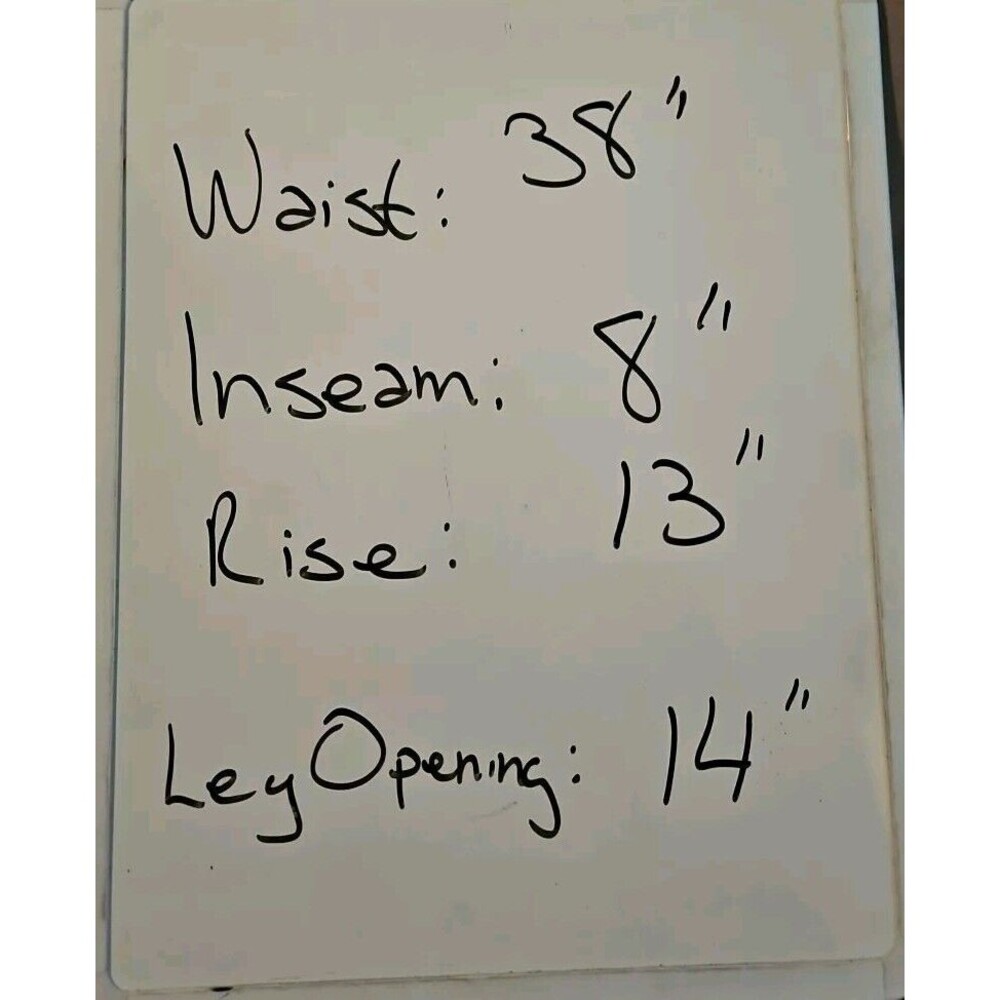 Waist: 38"
Inseam: 8"
Rise: 13"
Leg Opening: 14"